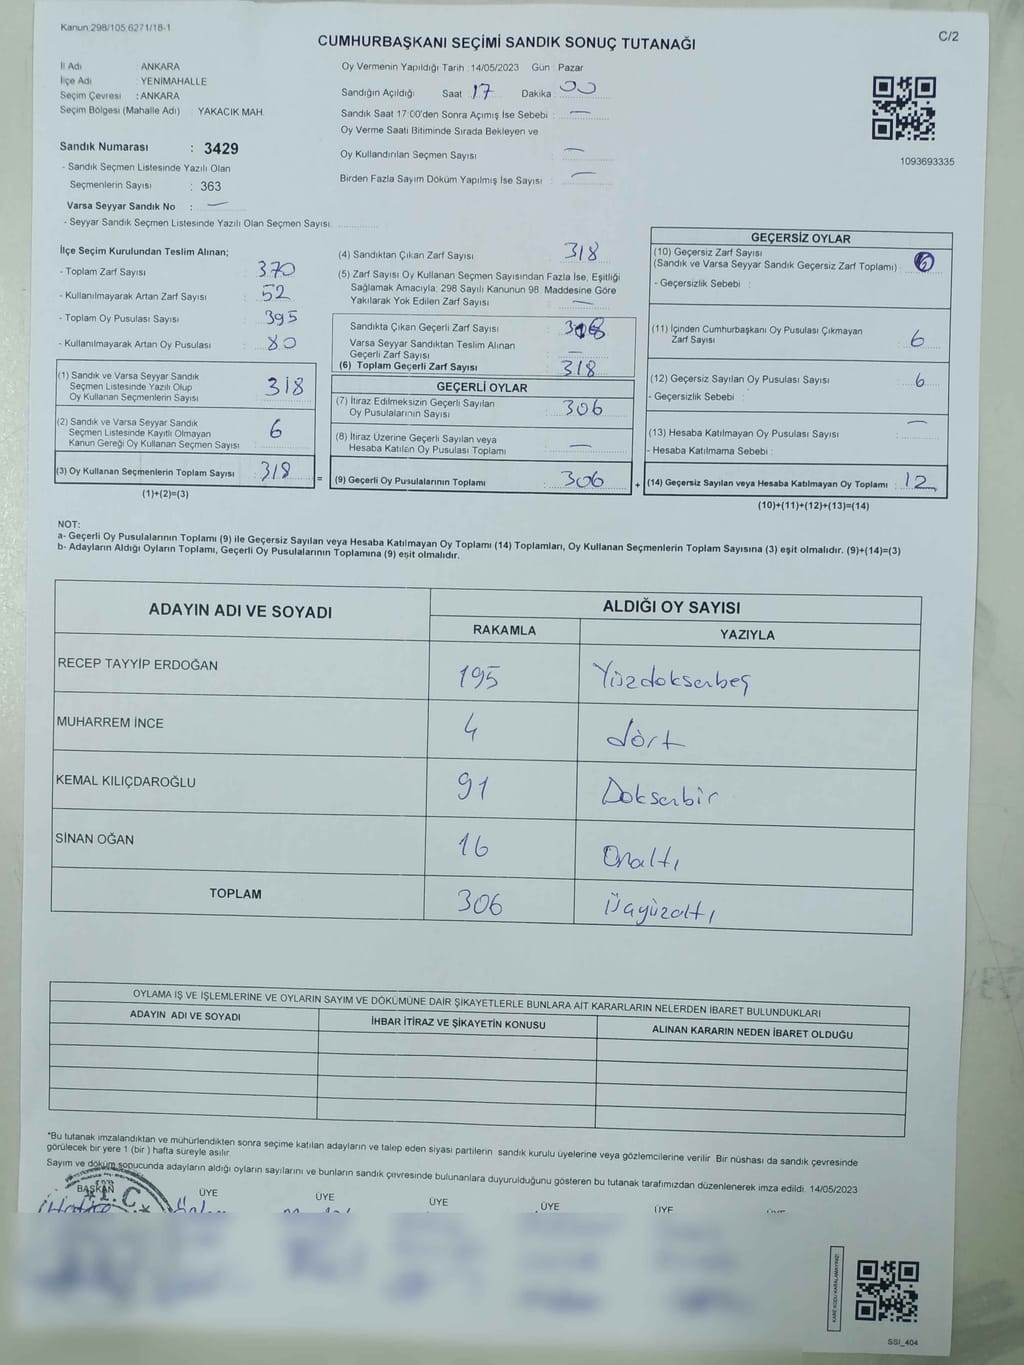 Kanun:298/105 6271/18-1
C/2
CUMHURBAŞKANI SEÇİMİ SANDIK SONUÇ TUTANAĞI
İl Adı : ANKARA
İlçe Adı : YENİMAHALLE
Seçim Çevresi : ANKARA
Seçim Bölgesi (Mahalle Adı) : YAKACIK MAH.
Sandık Numarası : 3429
- Sandık Seçmen Listesinde Yazılı Olan
Seçmenlerin Sayısı : 363
Varsa Seyyar Sandık No : —
- Seyyar Sandık Seçmen Listesinde Yazılı Olan Seçmen Sayısı
Oy Vermenin Yapıldığı Tarih : 14/05/2023 Gün : Pazar
Sandığın Açıldığı Saat 17 Dakika : 00
Sandık Saat 17:00'den Sonra Açımış İse Sebebi : —
Oy Verme Saati Bitiminde Sırada Bekleyen ve
Oy Kullandırılan Seçmen Sayısı —
Birden Fazla Sayım Döküm Yapılmış İse Sayısı : —
1093693335
İlçe Seçim Kurulundan Teslim Alınan;
- Toplam Zarf Sayısı : 370
- Kullanılmayarak Artan Zarf Sayısı : 52
- Toplam Oy Pusulası Sayısı : 395
- Kullanılmayarak Artan Oy Pusulası : 80
(1) Sandık ve Varsa Seyyar Sandık
Seçmen Listesinde Yazılı Olup
Oy Kullanan Seçmenlerin Sayısı : 318
(2) Sandık ve Varsa Seyyar Sandık
Seçmen Listesinde Kayıtlı Olmayan
Kanun Gereği Oy Kullanan Seçmen Sayısı : 6
(3) Oy Kullanan Seçmenlerin Toplam Sayısı : 318
(1)+(2)=(3)
(4) Sandıktan Çıkan Zarf Sayısı : 318
(5) Zarf Sayısı Oy Kullanan Seçmen Sayısından Fazla İse, Eşitliği
Sağlamak Amacıyla; 298 Sayılı Kanunun 98. Maddesine Göre
Yakılarak Yok Edilen Zarf Sayısı : —
Sandıkta Çıkan Geçerli Zarf Sayısı :
Varsa Seyyar Sandıktan Teslim Alınan
Geçerli Zarf Sayısı : —
(6) Toplam Geçerli Zarf Sayısı : 318
GEÇERLİ OYLAR
(7) İtiraz Edilmeksizin Geçerli Sayılan
Oy Pusulalarının Sayısı : 306
(8) İtiraz Üzerine Geçerli Sayılan veya
Hesaba Katılan Oy Pusulası Toplamı : —
= (9) Geçerli Oy Pusulalarının Toplamı : 306
GEÇERSİZ OYLAR
(10) Geçersiz Zarf Sayısı
(Sandık ve Varsa Seyyar Sandık Geçersiz Zarf Toplamı) :
- Geçersizlik Sebebi :
(11) İçinden Cumhurbaşkanı Oy Pusulası Çıkmayan
Zarf Sayısı : 6
(12) Geçersiz Sayılan Oy Pusulası Sayısı : 6
- Geçersizlik Sebebi :
(13) Hesaba Katılmayan Oy Pusulası Sayısı : —
- Hesaba Katılmama Sebebi :
+ (14) Geçersiz Sayılan veya Hesaba Katılmayan Oy Toplamı : 12
(10)+(11)+(12)+(13)=(14)
NOT:
a- Geçerli Oy Pusulalarının Toplamı (9) ile Geçersiz Sayılan veya Hesaba Katılmayan Oy Toplamı (14) Toplamları, Oy Kullanan Seçmenlerin Toplam Sayısına (3) eşit olmalıdır. (9)+(14)=(3)
b- Adayların Aldığı Oyların Toplamı, Geçerli Oy Pusulalarının Toplamına (9) eşit olmalıdır.
ADAYIN ADI VE SOYADI ALDIĞI OY SAYISI
RAKAMLA YAZIYLA
RECEP TAYYİP ERDOĞAN 195 Yüzdoksanbeş
MUHARREM İNCE 4 dört
KEMAL KILIÇDAROĞLU 91 Doksanbir
SİNAN OĞAN 16 Onaltı
TOPLAM 306 üçyüzaltı
OYLAMA İŞ VE İŞLEMLERİNE VE OYLARIN SAYIM VE DÖKÜMÜNE DAİR ŞİKAYETLERLE BUNLARA AİT KARARLARIN NELERDEN İBARET BULUNDUKLARI
ADAYIN ADI VE SOYADI İHBAR İTİRAZ VE ŞİKAYETİN KONUSU ALINAN KARARIN NEDEN İBARET OLDUĞU
*Bu tutanak imzalandıktan ve mühürlendikten sonra seçime katılan adayların ve talep eden siyasi partilerin sandık kurulu üyelerine veya gözlemcilerine verilir. Bir nüshası da sandık çevresinde
görülecek bir yere 1 (bir ) hafta süreyle asılır.
Sayım ve döküm sonucunda adayların aldığı oyların sayılarını ve bunların sandık çevresinde bulunanlara duyurulduğunu gösteren bu tutanak tarafımızdan düzenlenerek imza edildi. 14/05/2023
BAŞKAN ÜYE ÜYE ÜYE ÜYE ÜYE
T.C.
KARE KODU KARALAMAYINIZ!
SSI_404